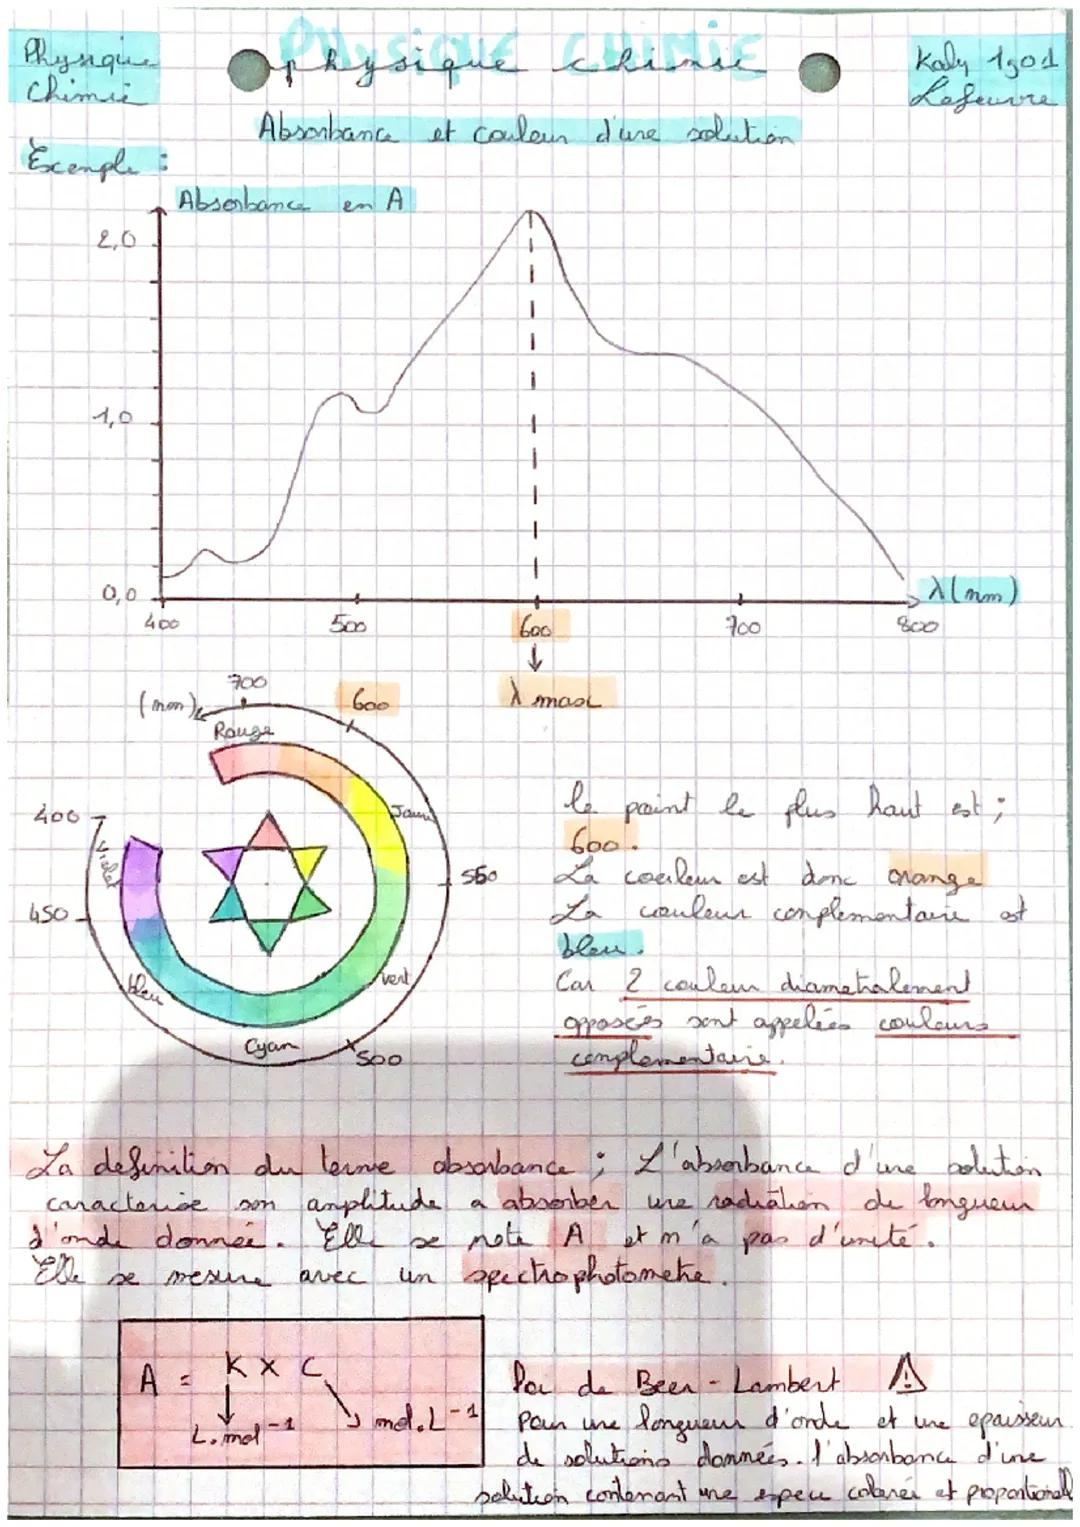 Physique
Chimie
PHYSIQUE CHIMIE
physique chimie
Kaly 1g01
Lefeuvre
Absorbance et couleur d'une solution
Exemple :
Absorbance en A
2,0
1,0
0,0
400 500 600 700 800
λ(nm)
λ max
(nm)
700
600
Rouge
Jaune
550
vert
500
Cyan
bleu
450
violet
400
le point le plus haut est ;
600.
La couleur est donc orange
La couleur complementaire est
bleu.
Car 2 couleur diametralement
opposées sont appelées couleurs
complementaire.
La definition du terme absorbance ; L'absorbance d'une solution
caracterise son amplitude a absorber une radiation de longueur
d'onde donnée. Elle se note A et n'a pas d'unité.
Elle se mesure avec un spectrophotometre.
A = K x C
L.mol⁻¹
mol.L⁻¹
Loi de Beer - Lambert ⚠
pour une longueur d'onde et une epaisseur
de solutions données. l'absorbance d'une
solution contenant une espece colorée et proportionnell